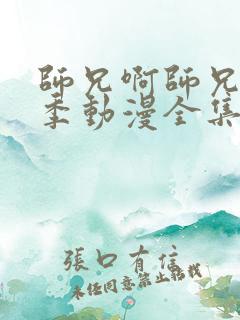 師兄啊師兄
季動漫全集
張口有信
未經同意禁止轉載